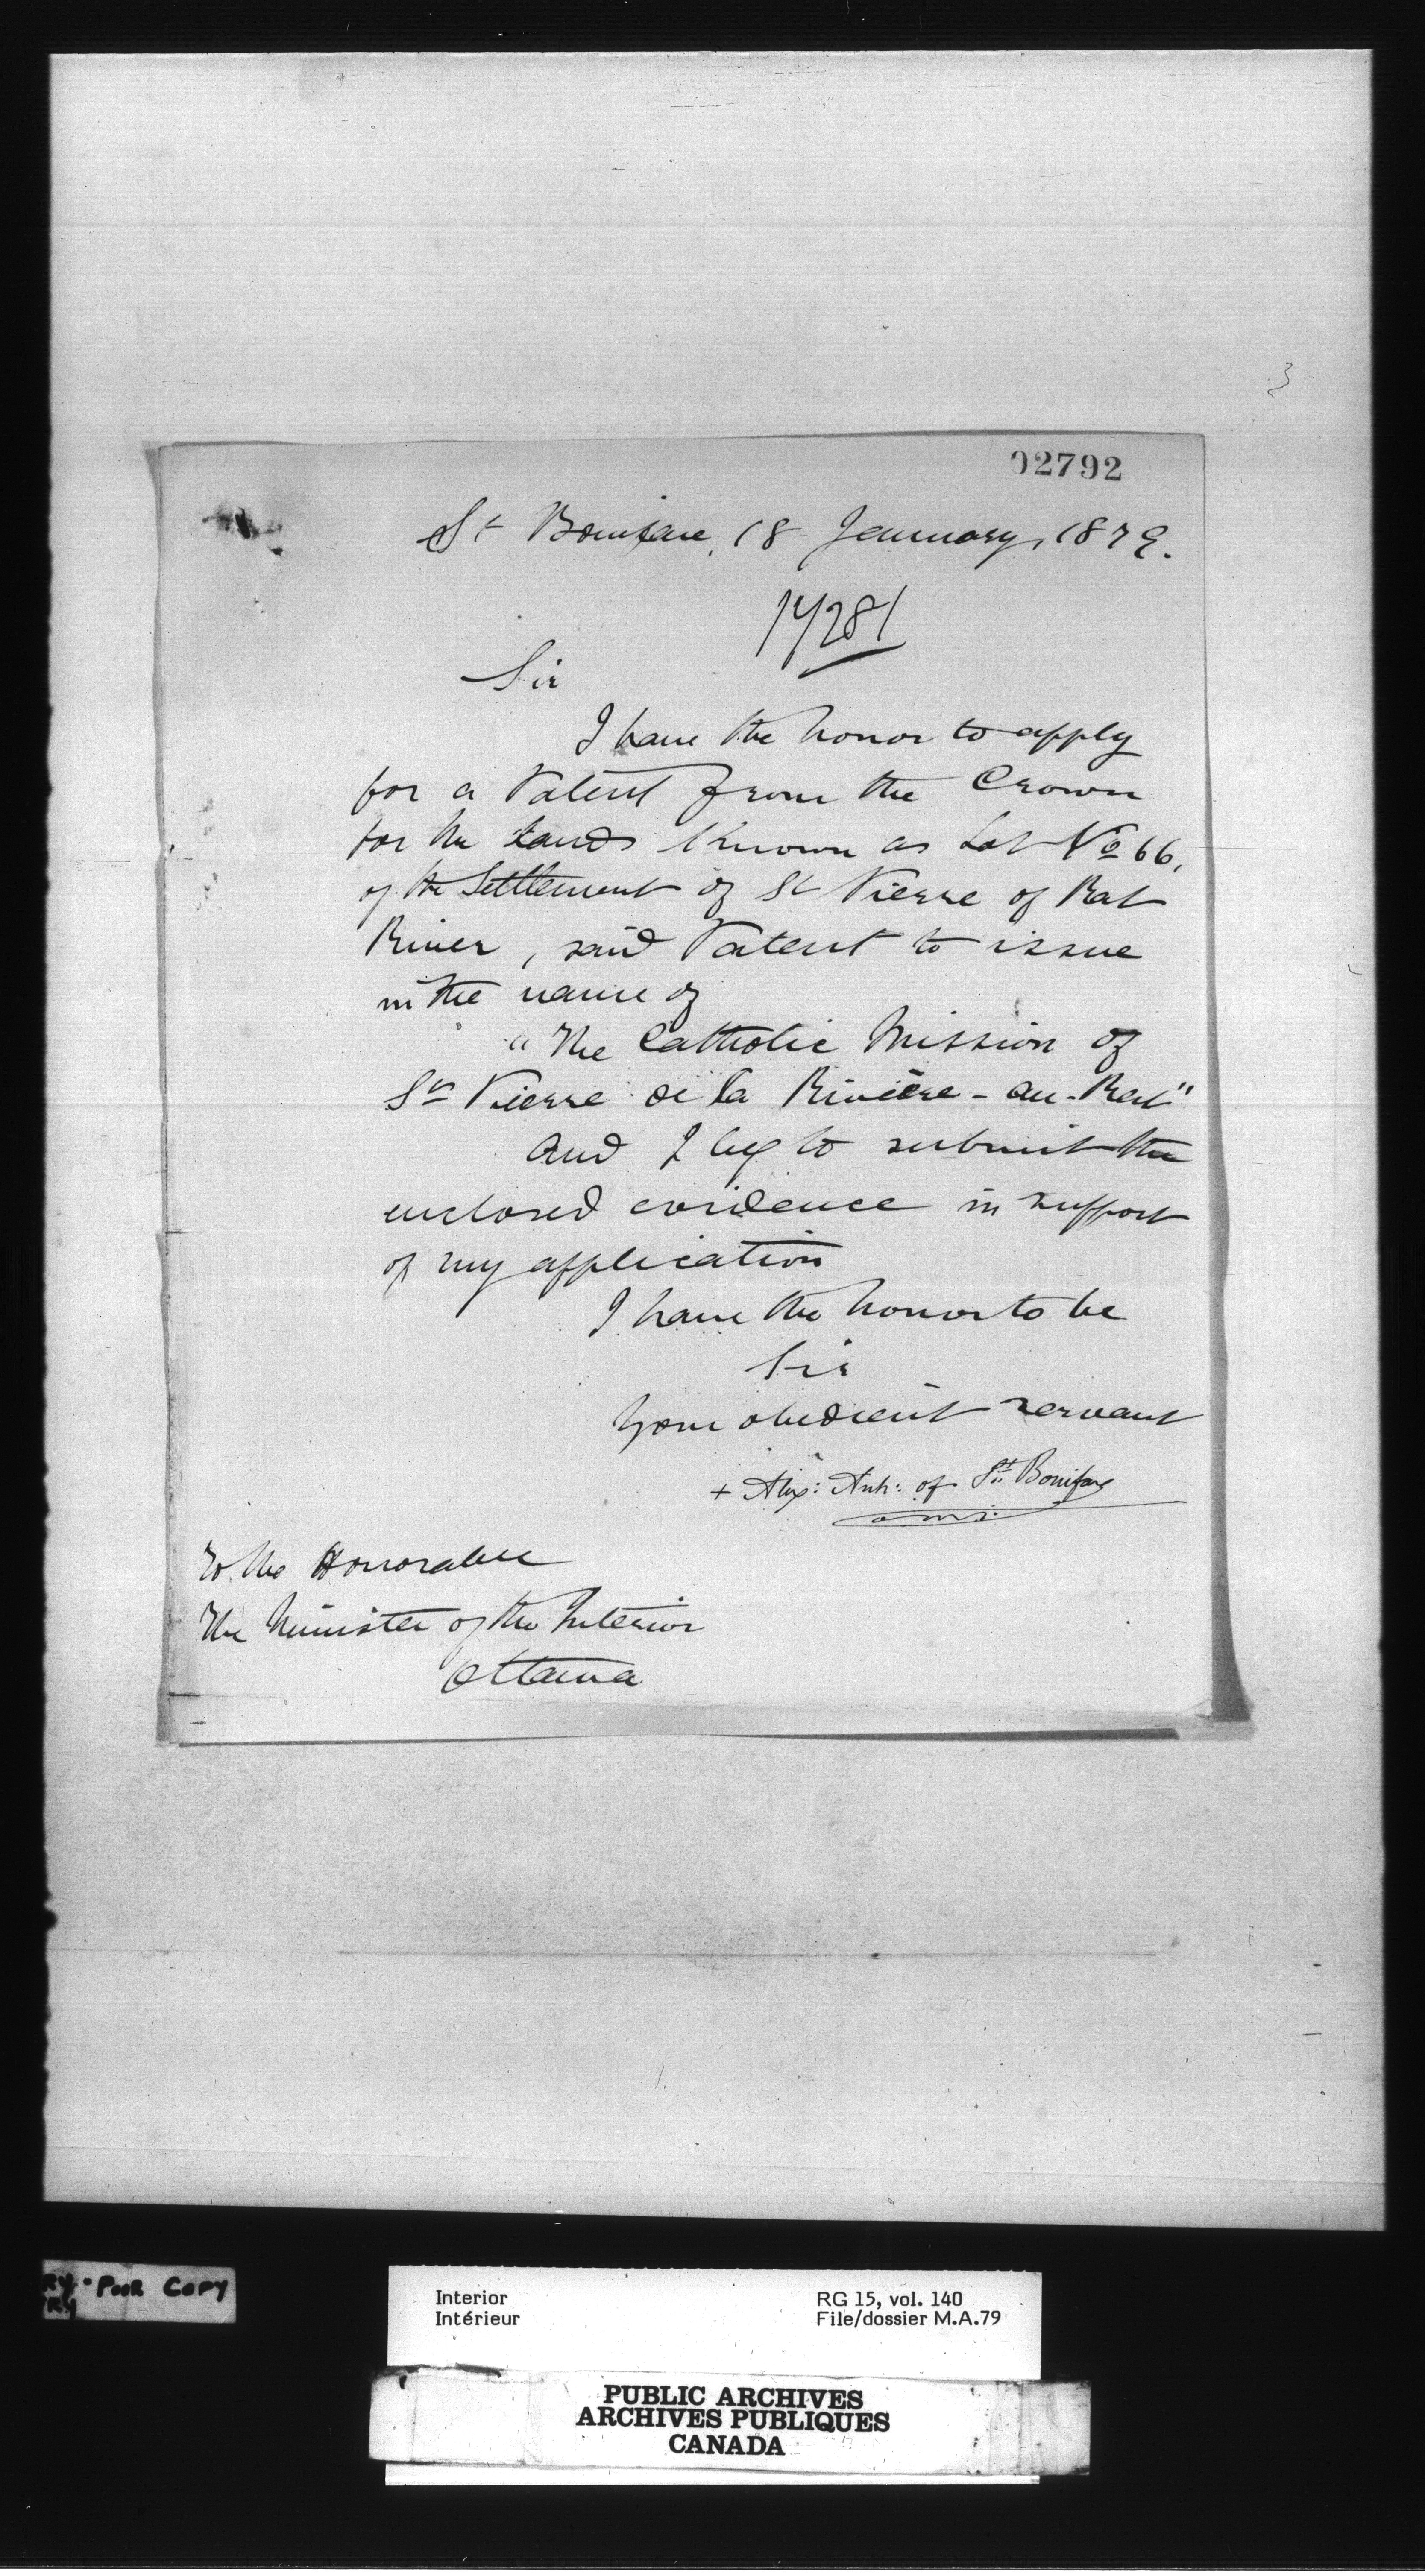 3
02792
St Boniface, 18 January, 1879.
14281
Sir
I have the honor to apply
for a Patent from the Crown
for the lands known as Lot No 66,
of the Settlement of St Pierre of Rat
River, said Patent to issue
in the name of
"The Catholic Mission of
St Pierre de la Rivière-au-Rat"
and I beg to submit the
enclosed evidence in support
of my application
I have the honor to be
Sir
Your obedient servant
+ Alex: Arch: of St. Boniface
o.m.i.
To the Honorable
The Minister of the Interior
Ottawa
RY - POOR COPY
RY
Interior
Intérieur
RG 15, vol. 140
File/dossier M.A.79
PUBLIC ARCHIVES
ARCHIVES PUBLIQUES
CANADA